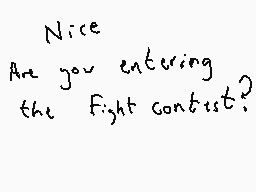 Nice
Are you entering
the Fight contest?